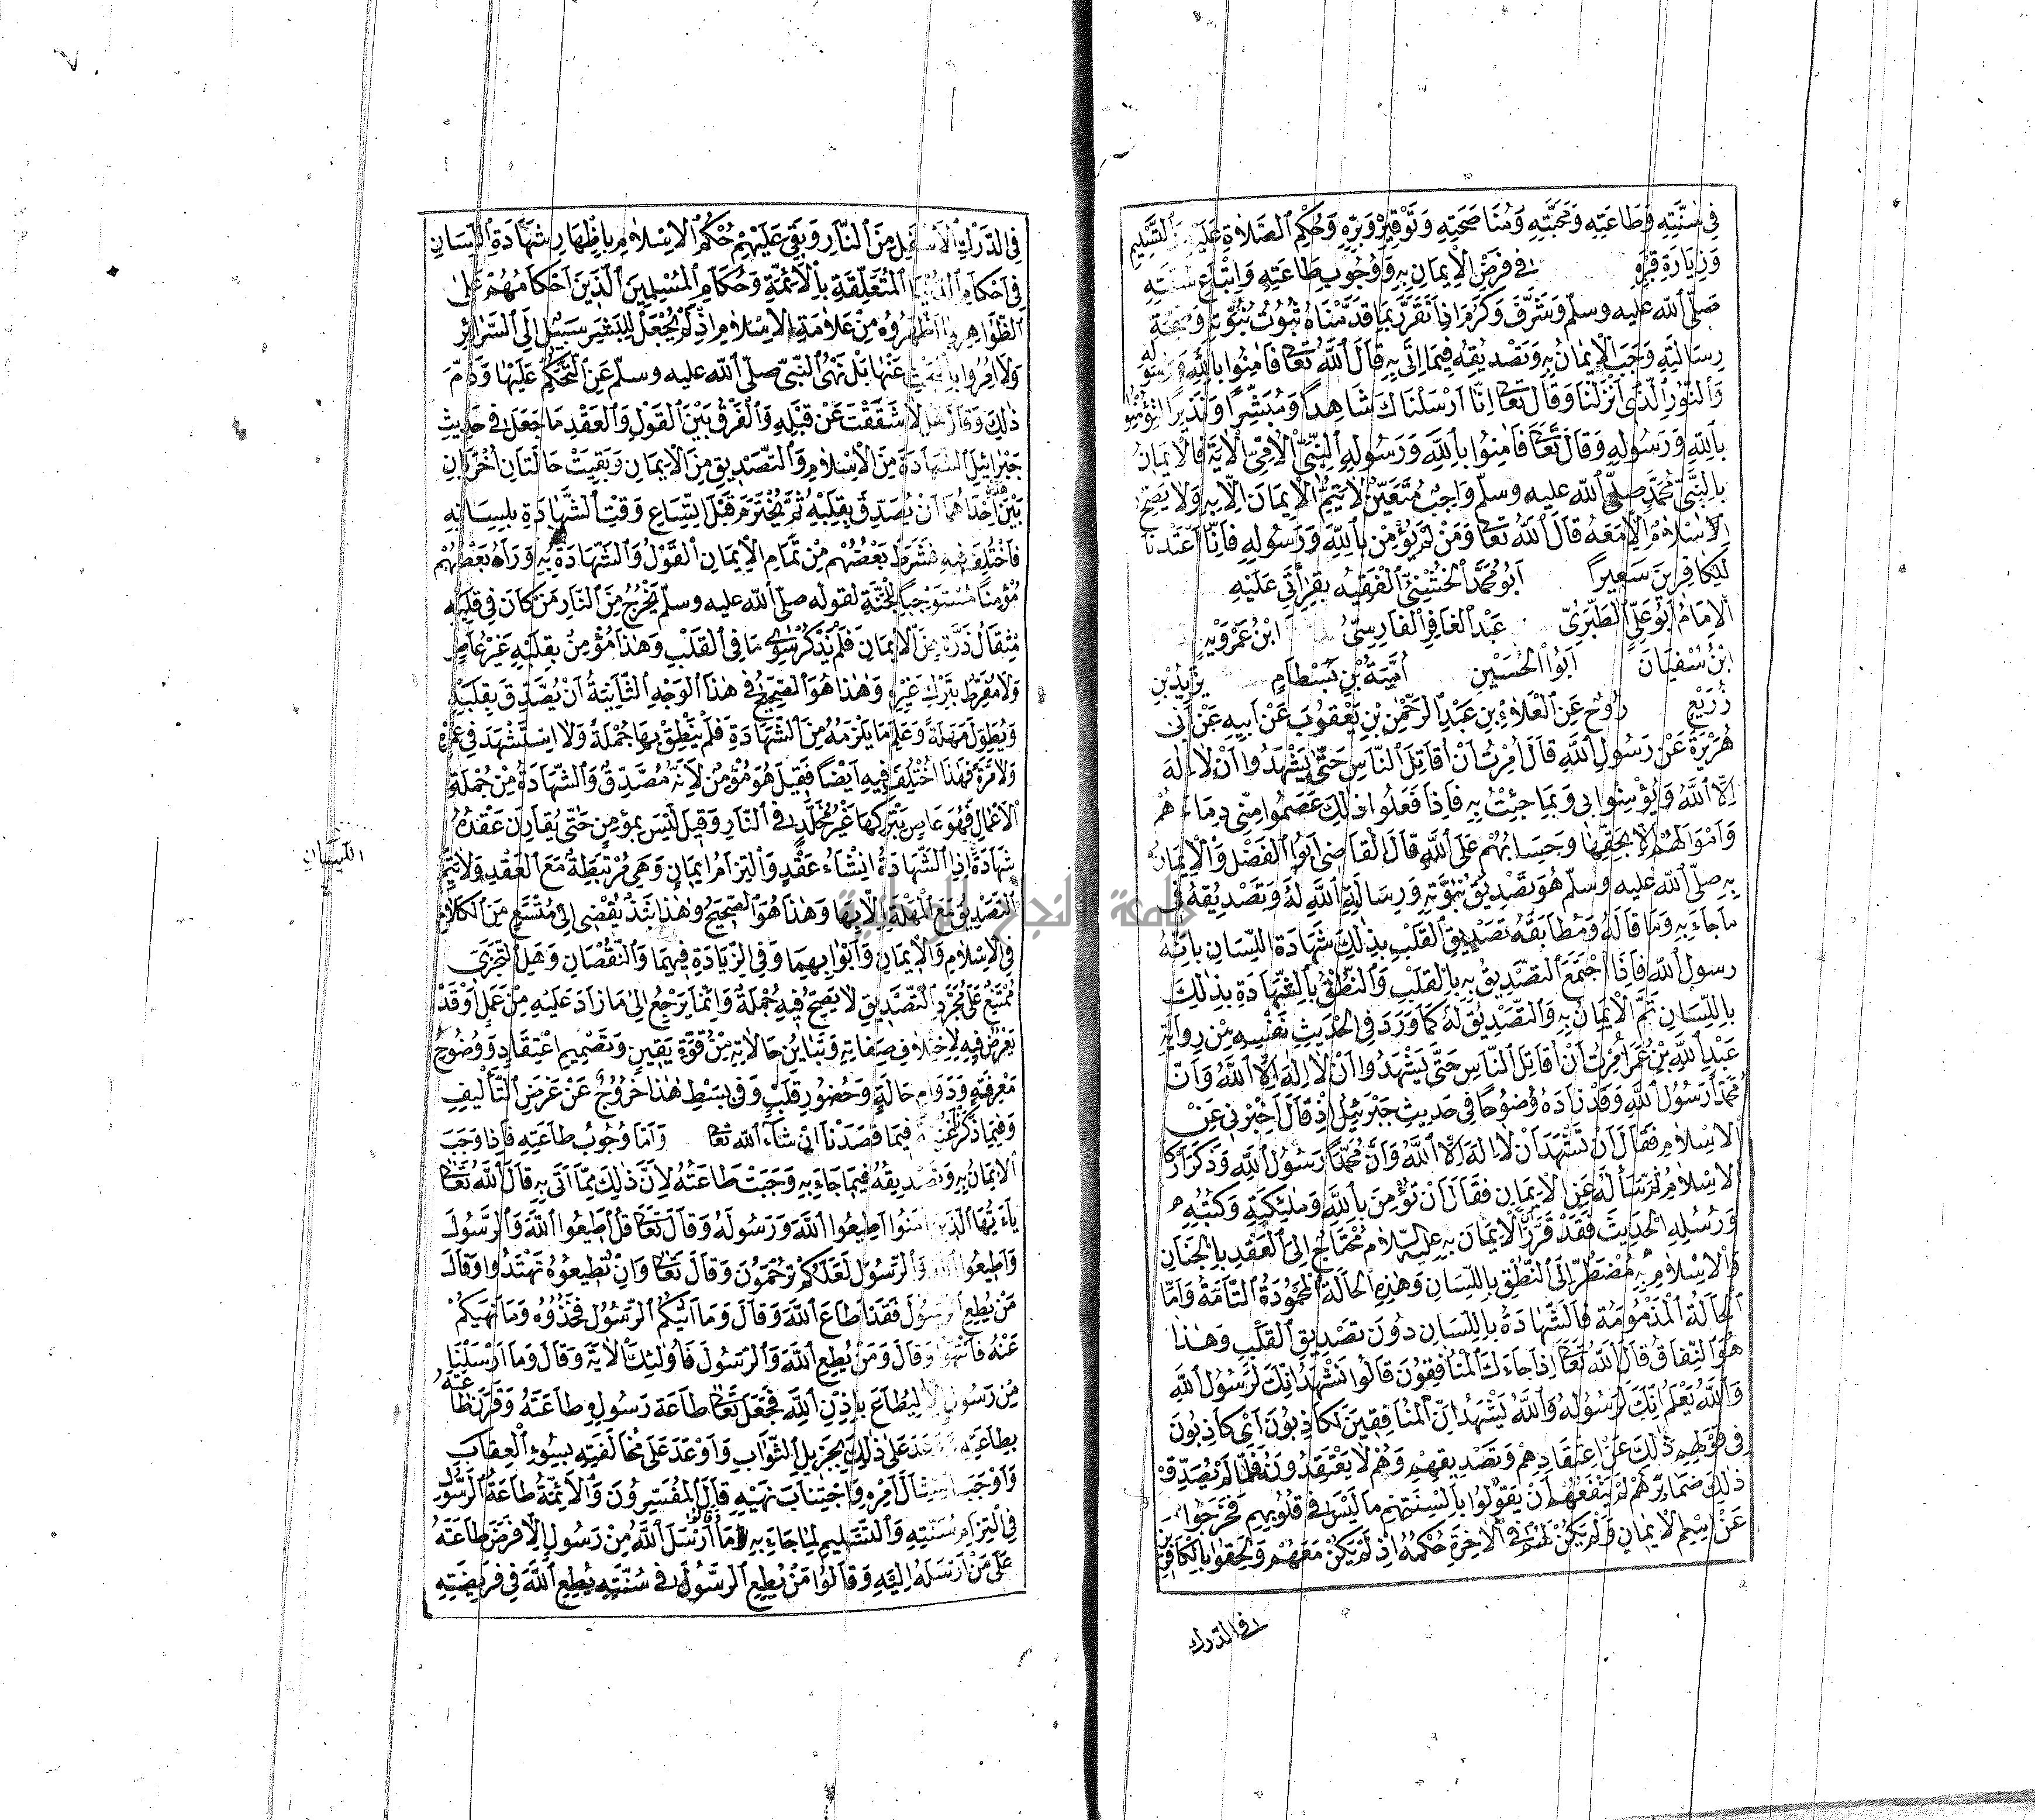 في سنته وطاعته ومحبته ومناصحته وتوقيره وبره وحكم الصلاة عليه والتسليم
وزيارة قبره في فرض الإيمان به ووجوب طاعته واتباع سنته
صلى الله عليه وسلم وشرف وكرم اذا تقرر بما قدمناه ثبوت نبوته وصحة
رسالته وجب الإيمان به وتصديقه فيما اتى به قال الله تعا فامنوا بالله ورسوله
والنور الذى انزلنا وقال تعا انا ارسلناك شاهدا ومبشرا ونذيرا لتؤمنوا
بالله ورسوله وقال تعا فامنوا بالله ورسوله النبى الامى الاية فالايمان
بالنبى محمد صلى الله عليه وسلم واجب متعين لا يتم الايمان الا به ولا يصح
الاسلام الا معه قال الله تعا ومن لم يؤمن بالله ورسوله فانا اعتدنا
للكافرين سعيرا ابو محمد الخشنى الفقيه بقراتى عليه
الامام ابو على الطبرى عبد الغافر الفارسى ابن عمرويه
ابن سفيان ابوا الحسين امية بن بسطام يزيد بن
زريع روح عن العلاء بن عبد الرحمن بن يعقوب عن ابيه عن ابى
هريرة عن رسول الله قال امرت ان اقاتل الناس حتى يشهدوا ان لا اله
الا الله ويؤمنوا بى وبما جئت به فاذا فعلوا ذلك عصموا منى دماءهم
واموالهم الا بحقها وحسابهم على الله قال القاضى ابوا الفضل والايمان
به صلى الله عليه وسلم هو تصديق نبوته ورسالة الله له وتصديقه فى
ما جاء به وما قاله ومطابقة تصديق القلب بذلك شهادة اللسان بانه
رسول الله فاذا اجتمع التصديق به بالقلب والنطق بالشهادة بذلك
باللسان تم الايمان به والتصديق له كما ورد فى الحديث نفسه من رواية
عبد الله بن عمر امرت ان اقاتل الناس حتى يشهدوا ان لا اله الا الله وان
محمدا رسول الله وقد زاده وضوحا فى حديث جبرئيل اذ قال اخبرنى عن
الاسلام فقال ان تشهد ان لا اله الا الله وان محمدا رسول الله وذكر اركا
الاسلام ثم سأله عن الايمان فقال ان تؤمن بالله وملئكته وكتبه
ورسله الحديث فقد قرر ان الايمان به عليه السلام محتاج الى العقد بالجنان
والاسلام به مضطر الى النطق باللسان وهذه الحالة المحمودة التامة واما
الحالة المذمومة فالشهادة باللسان دون تصديق القلب وهذا
هو النفاق قال الله تعا اذا جاءك المنافقون قالوا نشهد انك لرسول الله
والله يعلم انك لرسوله والله يشهد ان المنافقين لكاذبون اى كاذبون
فى قولهم ذلك عن اعتقادهم وتصديقهم وهم لا يعتقدونه فلما لم تصدق
ذلك ضمائرهم لم ينفعهم ان يقولوا بالسنتهم ما ليس فى قلوبهم فخرجوا
عن اسم الايمان ولم يكن لهم فى الاخرة حكمه اذ لم يكن معهم ولحقوا بالكافرين
فى الدرك
فى الدرك الاسفل من النار وبقى عليهم حكم الاسلام باظهار شهادة اللسان
فى احكام الدنيا المتعلقة بالائمة وحكام المسلمين الذين احكامهم على
الظواهر بما اظهروه من علامة الاسلام اذ لم يجعل للبشر سبيل الى السرائر
ولا امروا بالبحث عنها بل نهى النبى صلى الله عليه وسلم عن التحكم عليها وذم
ذلك وقال هلا شققت عن قبله والفرق بين القول والعقد ما جعل فى حديث
جبرائيل الشهادة من الاسلام والتصديق من الايمان وبقيت حالتان اخريان
بين هذين احداهما ان يصدق بقلبه ثم يخترم قبل اتساع وقت الشهادة بلسانه
فاختلف فيه فشرط بعضهم من تمام الايمان القول والشهادة به وراه بعضهم
مؤمنا مستوجبا للجنة لقوله صلى الله عليه وسلم يخرج من النار من كان فى قلبه
مثقال ذرة من الايمان فلم يذكر سوى ما فى القلب وهذا مؤمن بقلبه غير عاص
ولا مفرط بترك غيره وهذا هو الصحيح فى هذا الوجه الثانية ان يصدق بقلبه
ويطول مهلة وعلم ما يلزمه من الشهادة فلم ينطق بها جملة ولا استشهد فى عمره
ولا مرة فهذا اختلف فيه ايضا فقيل هو مؤمن لانه مصدق والشهادة من جملة
الاعمال فهو عاص بتركها غير مخلد فى النار وقيل ليس بمؤمن حتى يقارن عقده
شهادة اذ الشهادة انشاء عقد والتزام ايمان وهى مرتبطة مع العقد ولا يتم
التصديق مع المهلة الا بها وهذا هو الصحيح وهذا نبذ يفضى الى متسع من الكلام
فى الاسلام والايمان وابوابهما وفى الزيادة فيهما والنقصان وهل التجزى
ممتنع على مجرد التصديق لا يصح فيه جملة وانما يرجع الى ما زاد عليه من عمل او قد
يعرض فيه لاختلاف صفاته وتباين حالاته من قوة يقين وتصميم اعتقاد ووضوح
معرفة ودوام حالة وحضور قلب وفى بسط هذا خروج عن غرض التأليف
وفيما ذكرنا غنية فيما قصدنا ان شاء الله تعا واما وجوب طاعته فاذا وجب
الايمان به وتصديقه فيما جاء به وجبت طاعته لان ذلك مما اتى به قال الله تعا
يا ايها الذين امنوا اطيعوا الله ورسوله وقال تعا قل اطيعوا الله والرسول
واطيعوا الله والرسول لعلكم ترحمون وقال تعا وان تطيعوه تهتدوا وقال
من يطع الرسول فقد اطاع الله وقال وما اتيكم الرسول فخذوه وما نهيكم
عنه فانتهوا وقال ومن يطع الله والرسول فاولئك الاية وقال وما ارسلنا
من رسول الا ليطاع باذن الله فجعل تعا طاعة رسوله طاعته وقرن طاعته
بطاعته ووعد على ذلك بجزيل الثواب واوعد على مخالفته بسوء العقاب
واوجب امتثال امره واجتناب نهيه قال المفسرون والائمة طاعة الرسول
فى التزام سنته والتسليم لما جاء به وقالوا ما ارسل الله من رسول الا فرض طاعته
على من ارسله اليه وقالوا من يطع الرسول فى سنته يطع الله فى فريضته
جامعة النجاح الوطنية